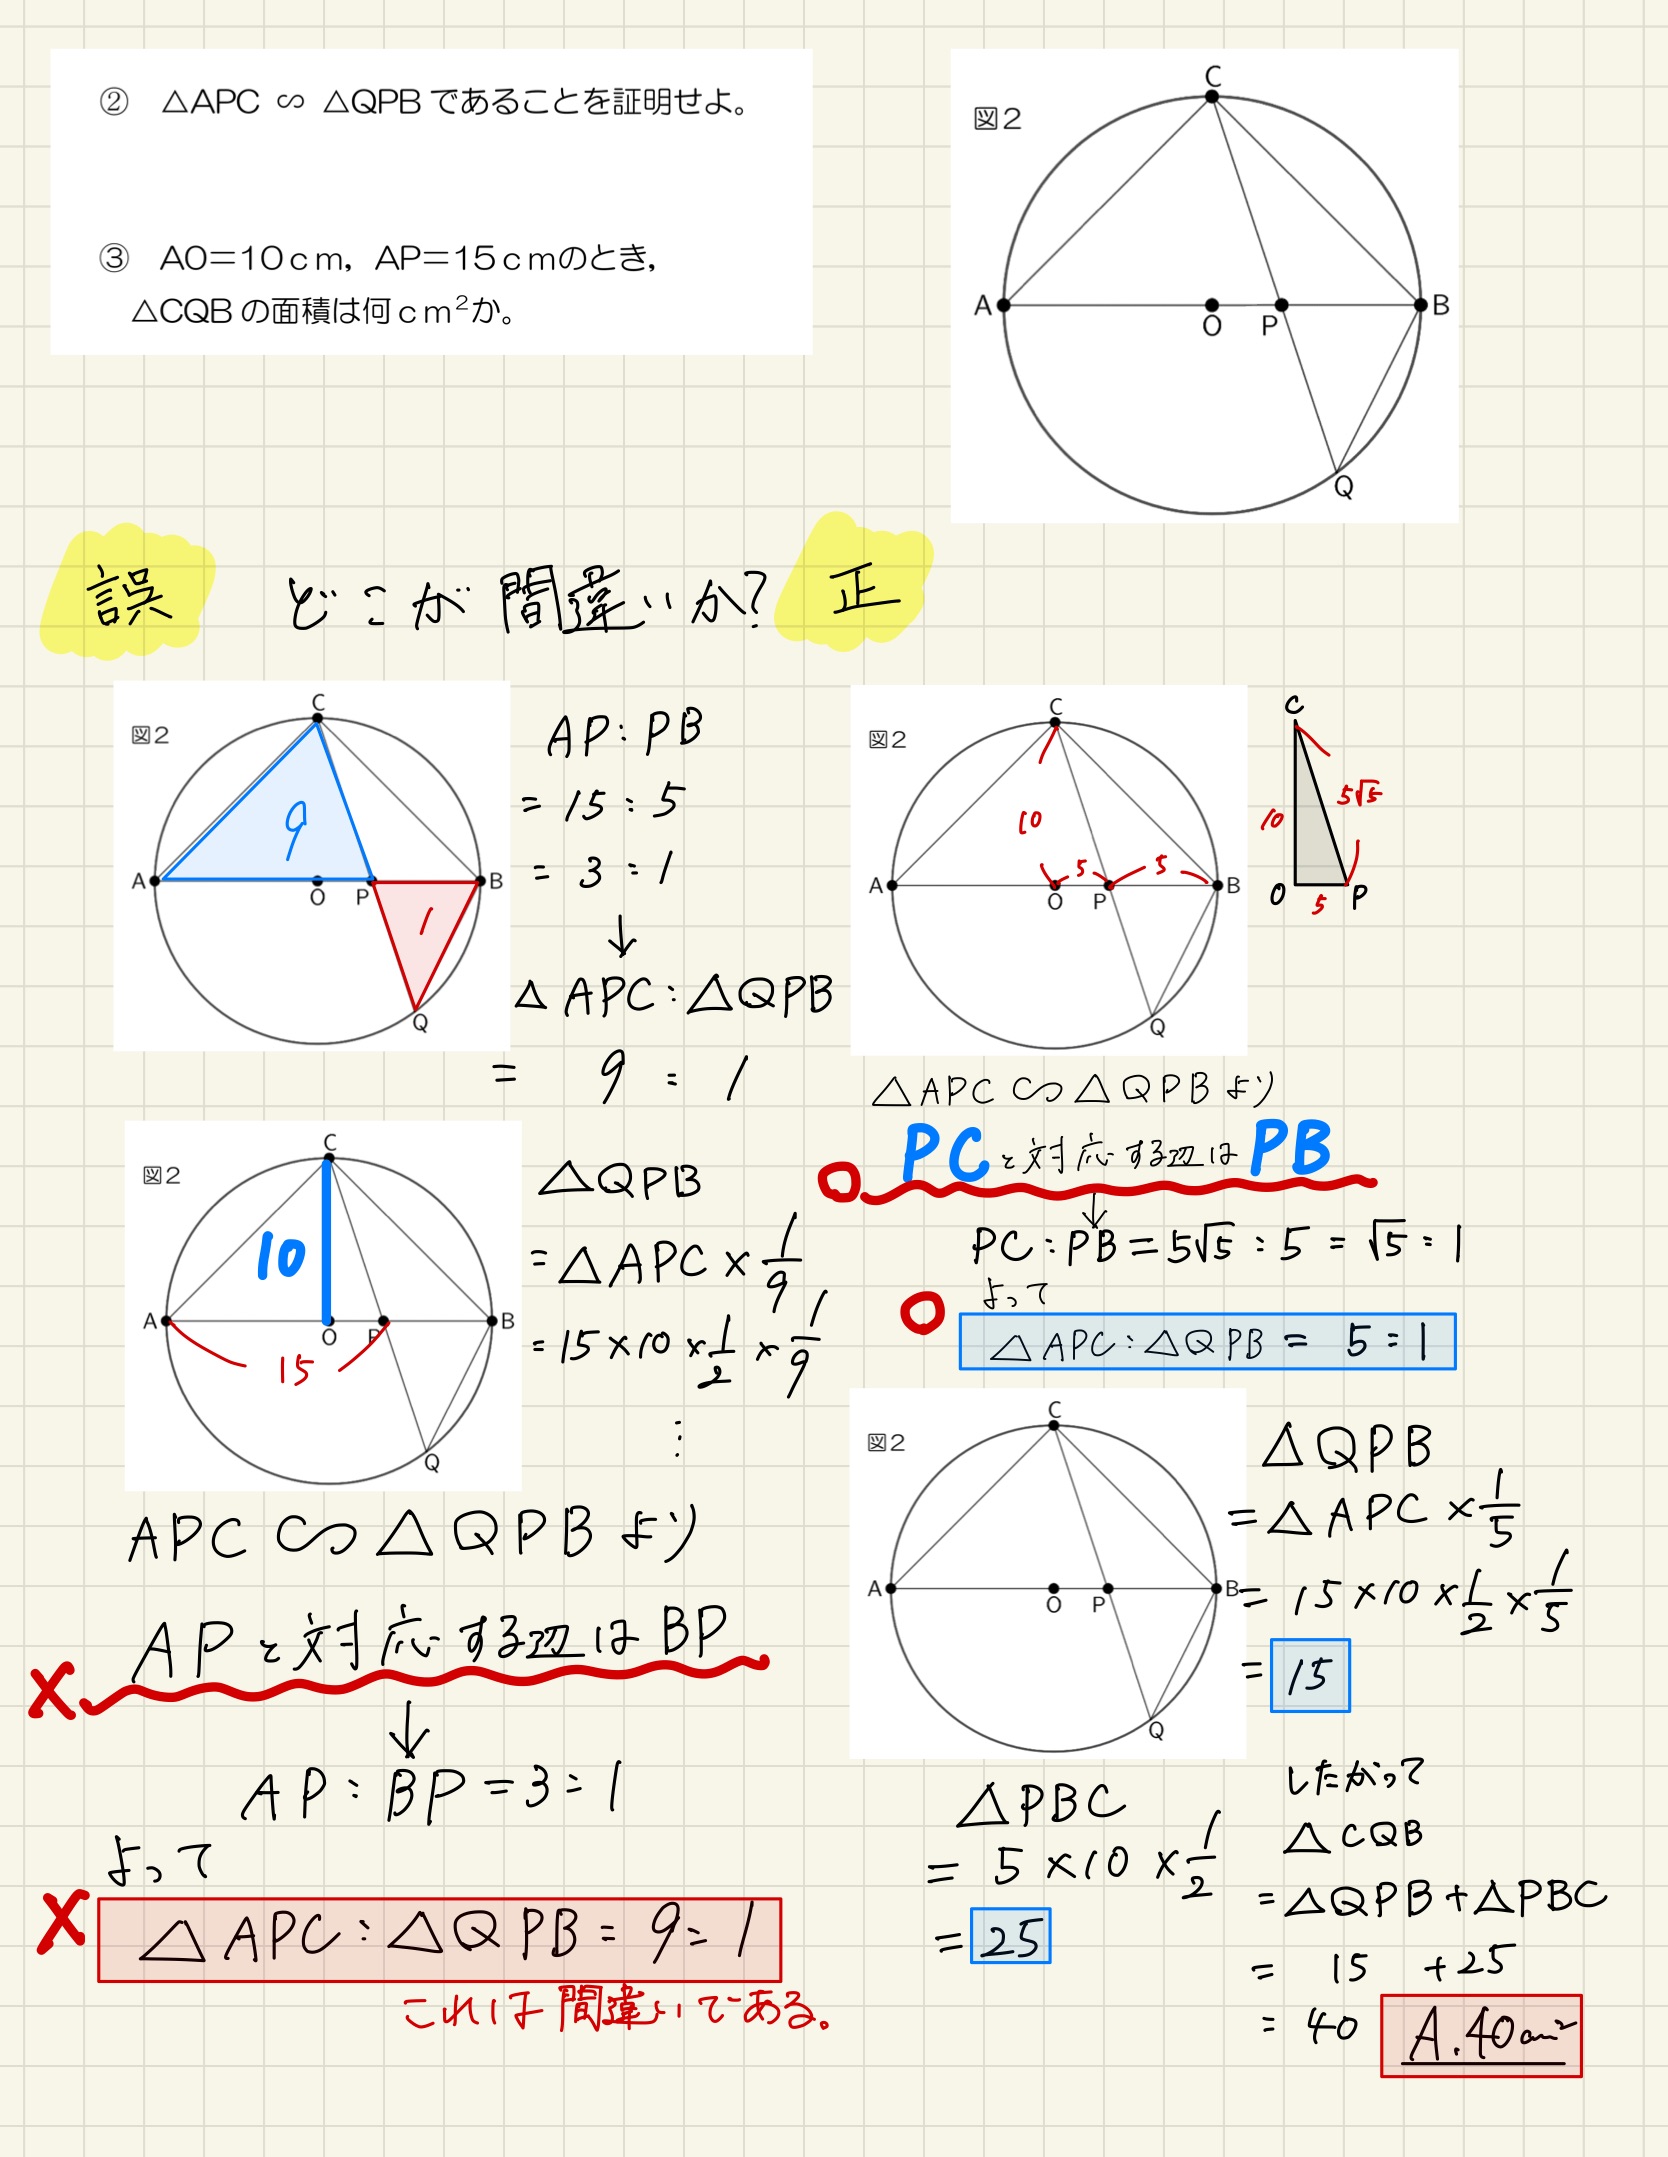 ② △APC ∽ △QPB であることを証明せよ。
③ AO=10cm, AP=15cmのとき,
△CQB の面積は何cm²か。
図2
C
A
O
P
B
Q
誤
どこが間違いか?
正
図2
C
9
A
O
P
B
1
Q
AP:PB
= 15:5
= 3:1
↓
△APC:△QPB
= 9:1
図2
C
10
A
O
P
B
15
Q
△QPB
= △APC × 1/9
= 15×10×1/2×1/9
⋮
APC ∽ △QPB より
× AP と対応する辺は BP
↓
AP:BP = 3:1
よって
× △APC:△QPB = 9:1
これは間違いである。
図2
C
10
5
5
A
O
P
B
Q
C
10
5√5
O
5
P
△APC ∽ △QPB より
PCと対応する辺は PB
↓
PC:PB = 5√5:5 = √5:1
よって
△APC:△QPB = 5:1
図2
C
A
O
P
B
Q
△QPB
= △APC × 1/5
= 15×10×1/2×1/5
= 15
△PBC
= 5×10×1/2
= 25
したがって
△CQB
= △QPB+△PBC
= 15 +25
= 40
A.40cm²